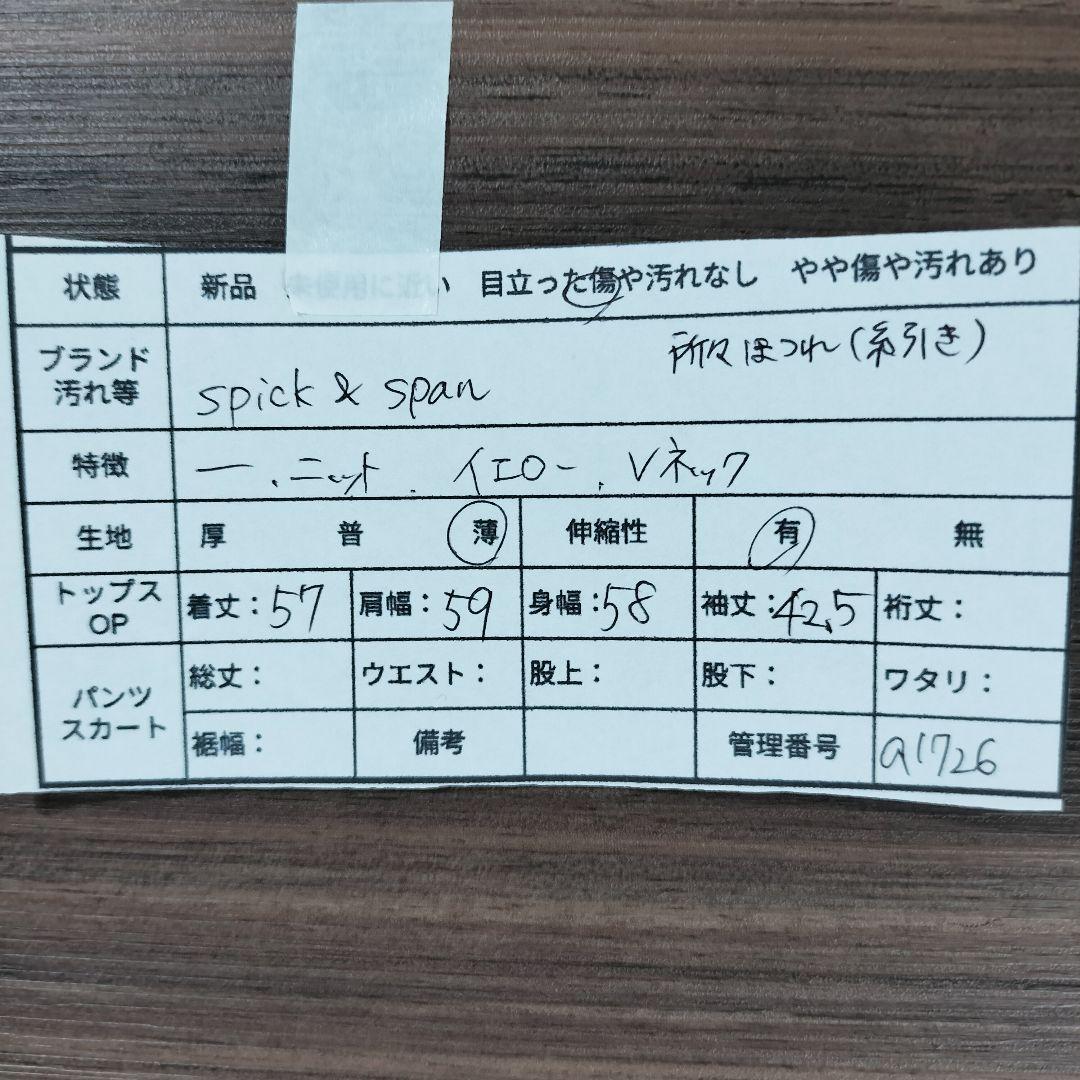 状態 新品 未使用に近い 目立った傷や汚れなし やや傷や汚れあり
ブランド 汚れ等 所々ほつれ(糸引き)
spick & span
特徴 一.ニット.イエロー.Vネック
生地 厚 普 薄 伸縮性 有 無
トップス OP 着丈:57 肩幅:59 身幅:58 袖丈:42.5 裄丈:
パンツ スカート 総丈: ウエスト: 股上: 股下: ワタリ:
裾幅: 備考 管理番号 a1726